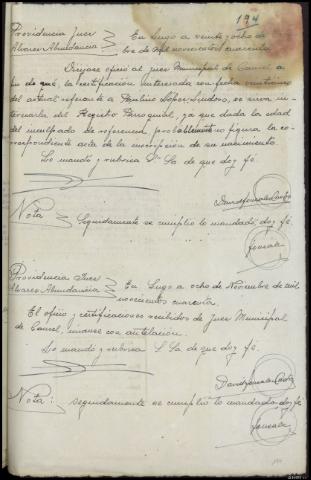 194
Providencia Juez
Alvarez Abundancia
En Lugo a veinte y ocho de
bre de mil novecientos cuarenta.
Diríjase oficio al juez Municipal de Caurel a
fin de que, la certificación interesada con fecha
del actual referente a Paulino López, se sirva in-
teresarla del Registro Parroquial, ya que dada la edad
del inculpado de referencia, probablemente no figura la co-
rrespondiente acta de la inscripción de su nacimiento.
Lo mandó y rubrica S. Sª de que doy fé.
Nota
Seguidamente se cumplió lo mandado, doy fé.
Providencia Juez
Alvarez Abundancia
En Lugo a ocho de Noviembre de mil
novecientos cuarenta.
El oficio y certificaciones recibidos de Juez Municipal
de Caurel, únanse con antelación.
Lo mandó y rubrica S. Sª de que doy fé.
Nota:
seguidamente se cumplió lo mandado doy fé